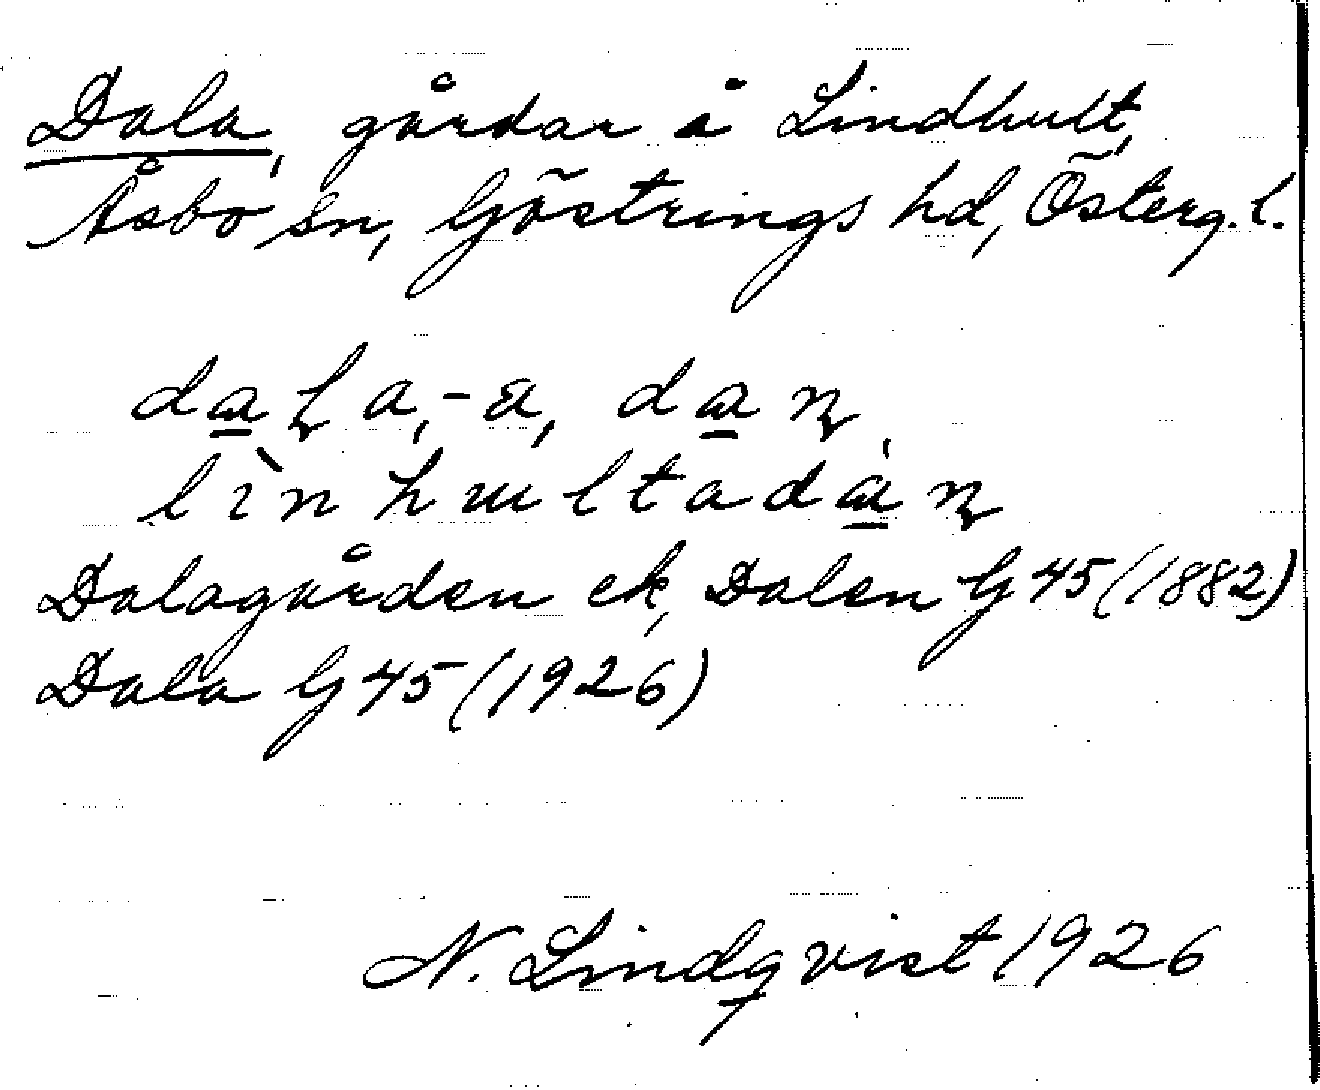 Dala, gårdar å Lindhult,
Åsbo sn, Göstrings hd, Österg. l.
dɑɭa, -ᴀ, dɑɳ
lìnhɯltadɑ̀ɳ
Dalagården ek, Dalen G 45 (1882)
Dala G 45 (1926)
N. Lindqvist 1926